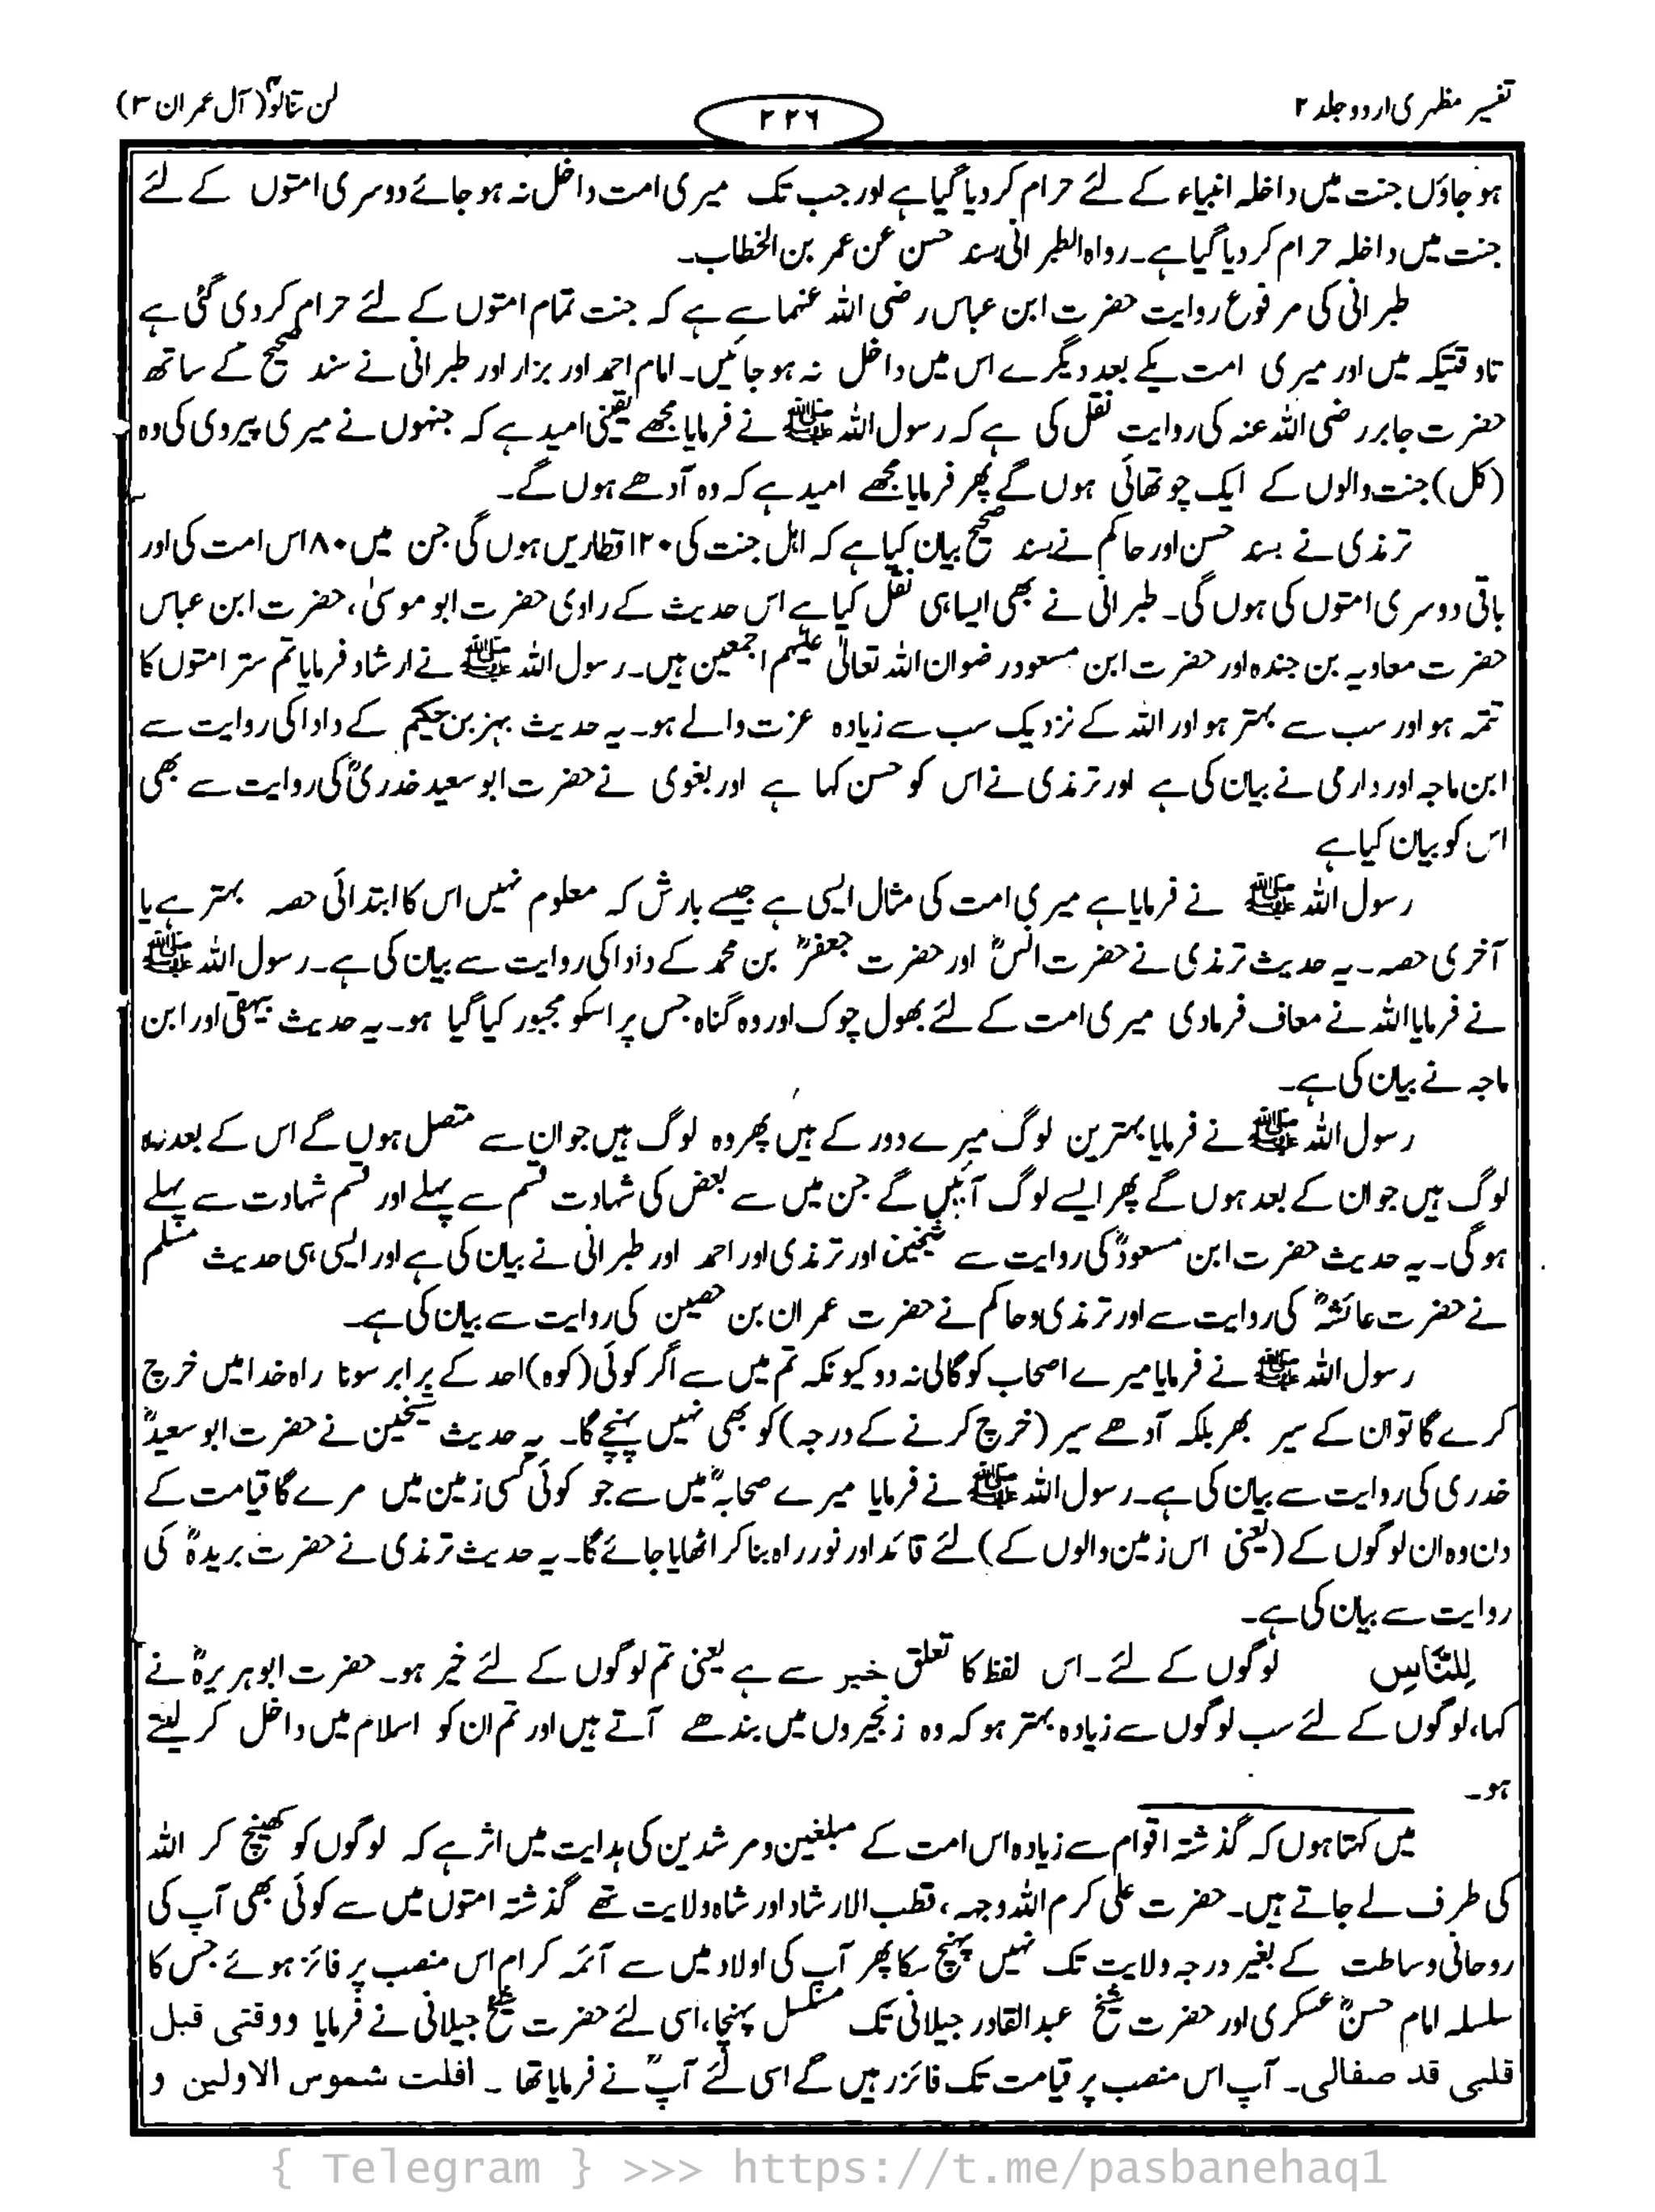 تفسیر مظہری اردو جلد ۲
۲۲۶
لن تنالوا (آل عمران ۳)
ہو جاؤں جنت میں داخلہ انبیاء کے لئے حرام کر دیا گیا ہے اور جب تک میری امت داخل نہ ہو جائے دوسری امتوں کے لئے
جنت میں داخلہ حرام کر دیا گیا ہے۔ رواہ الطبرانی بسند حسن عن عمر بن الخطاب۔
طبرانی کی مرفوع روایت حضرت ابن عباس رضی اللہ عنہما سے ہے کہ جنت تمام امتوں کے لئے حرام کر دی گئی ہے
تاوقتیکہ میں اور میری امت یکے بعد دیگرے اس میں داخل نہ ہو جائیں۔ امام احمد اور بزار اور طبرانی نے سند صحیح کے ساتھ
حضرت جابر رضی اللہ عنہ کی روایت نقل کی ہے کہ رسول اللہ ﷺ نے فرمایا مجھے یقینی امید ہے کہ جنہوں نے میری پیروی کی وہ
(کل) جنت والوں کے ایک چوتھائی ہوں گے پھر فرمایا مجھے امید ہے کہ وہ آدھے ہوں گے۔
ترمذی نے بسند حسن اور حاکم نے بسند صحیح بیان کیا ہے کہ اہل جنت کی ۱۲۰ قطاریں ہوں گی جن میں ۸۰ اس امت کی اور
باقی دوسری امتوں کی ہوں گی۔ طبرانی نے بھی ایسا ہی نقل کیا ہے اس حدیث کے راوی حضرت ابو موسیٰ، حضرت ابن عباس
حضرت معاویہ بن جندہ اور حضرت ابن مسعود رضوان اللہ تعالیٰ علیہم اجمعین ہیں۔ رسول اللہ ﷺ نے ارشاد فرمایا تم ستر امتوں کا
تتمہ ہو اور سب سے بہتر ہو اور اللہ کے نزدیک سب سے زیادہ عزت والے ہو۔ یہ حدیث بہز بن حکیم کے دادا کی روایت سے
ابن ماجہ اور دارمی نے بیان کی ہے اور ترمذی نے اس کو حسن کہا ہے اور بغوی نے حضرت ابو سعید خدریؓ کی روایت سے بھی
اس کو بیان کیا ہے
رسول اللہ ﷺ نے فرمایا ہے میری امت کی مثال ایسی ہے جیسے بارش کہ معلوم نہیں اس کا ابتدائی حصہ بہتر ہے یا
آخری حصہ۔ یہ حدیث ترمذی نے حضرت انسؓ اور حضرت جعفرؓ بن محمد کے دادا کی روایت سے بیان کی ہے۔ رسول اللہ ﷺ
نے فرمایا اللہ نے معاف فرما دی میری امت کے لئے بھول چوک اور وہ گناہ جس پر اسکو مجبور کیا گیا ہو۔ یہ حدیث بیہقی اور ابن
ماجہ نے بیان کی ہے۔
رسول اللہ ﷺ نے فرمایا بہترین لوگ میرے دور کے ہیں پھر وہ لوگ ہیں جو ان سے متصل ہوں گے اس کے بعد وہ
لوگ ہیں جو ان کے بعد ہوں گے پھر ایسے لوگ آئیں گے جن میں سے بعض کی شہادت قسم سے پہلے اور قسم شہادت سے پہلے
ہو گی۔ یہ حدیث حضرت ابن مسعودؓ کی روایت سے شیخین اور ترمذی اور احمد اور طبرانی نے بیان کی ہے اور ایسی ہی حدیث مسلم
نے حضرت عائشہؓ کی روایت سے اور ترمذی و حاکم نے حضرت عمران بن حصین کی روایت سے بیان کی ہے۔
رسول اللہ ﷺ نے فرمایا میرے اصحاب کو گالی نہ دو کیونکہ تم میں سے اگر کوئی (کوہ) احد کے برابر سونا راہ خدا میں خرچ
کرے گا تو ان کے سیر بھر بلکہ آدھے سیر (خرچ کرنے کے درجہ) کو بھی نہیں پہنچے گا۔ یہ حدیث شیخین نے حضرت ابو سعیدؓ
خدری کی روایت سے بیان کی ہے۔ رسول اللہ ﷺ نے فرمایا میرے صحابہؓ میں سے جو کوئی کسی زمین میں مرے گا قیامت کے
دن وہ ان لوگوں کے (یعنی اس زمین والوں کے) لئے قائد اور نور راہ بنا کر اٹھایا جائے گا۔ یہ حدیث ترمذی نے حضرت بریدہؓ کی
روایت سے بیان کی ہے۔
لِلنَّاسِ لوگوں کے لئے۔ اس لفظ کا تعلق خیر سے ہے یعنی تم لوگوں کے لئے خیر ہو۔ حضرت ابوہریرہؓ نے
کہا، لوگوں کے لئے سب لوگوں سے زیادہ بہتر ہو کہ وہ زنجیروں میں بندھے آتے ہیں اور تم ان کو اسلام میں داخل کر لیتے
ہو۔
میں کہتا ہوں کہ گذشتہ اقوام سے زیادہ اس امت کے مبلغین و مرشدین کی ہدایت میں اثر ہے کہ لوگوں کو کھینچ کر اللہ
کی طرف لے جاتے ہیں۔ حضرت علی کرم اللہ وجہہ، قطب الارشاد اور شاہ ولایت تھے گذشتہ امتوں میں سے کوئی بھی آپ کی
روحانی وساطت کے بغیر درجہ ولایت تک نہیں پہنچ سکا پھر آپ کی اولاد میں سے آئمہ کرام اس منصب پر فائز ہوئے جس کا
سلسلہ امام حسنؓ عسکری اور حضرت شیخ عبدالقادر جیلانی تک مسلسل پہنچا، اسی لئے حضرت شیخ جیلانی نے فرمایا ووقتی قبل
قلبی قد صفالی۔ آپ اس منصب پر قیامت تک فائز رہیں گے اسی لئے آپؒ نے فرمایا تھا ۔ افلت شموس الاولین و
{ Telegram } >>> https://t.me/pasbanehaq1